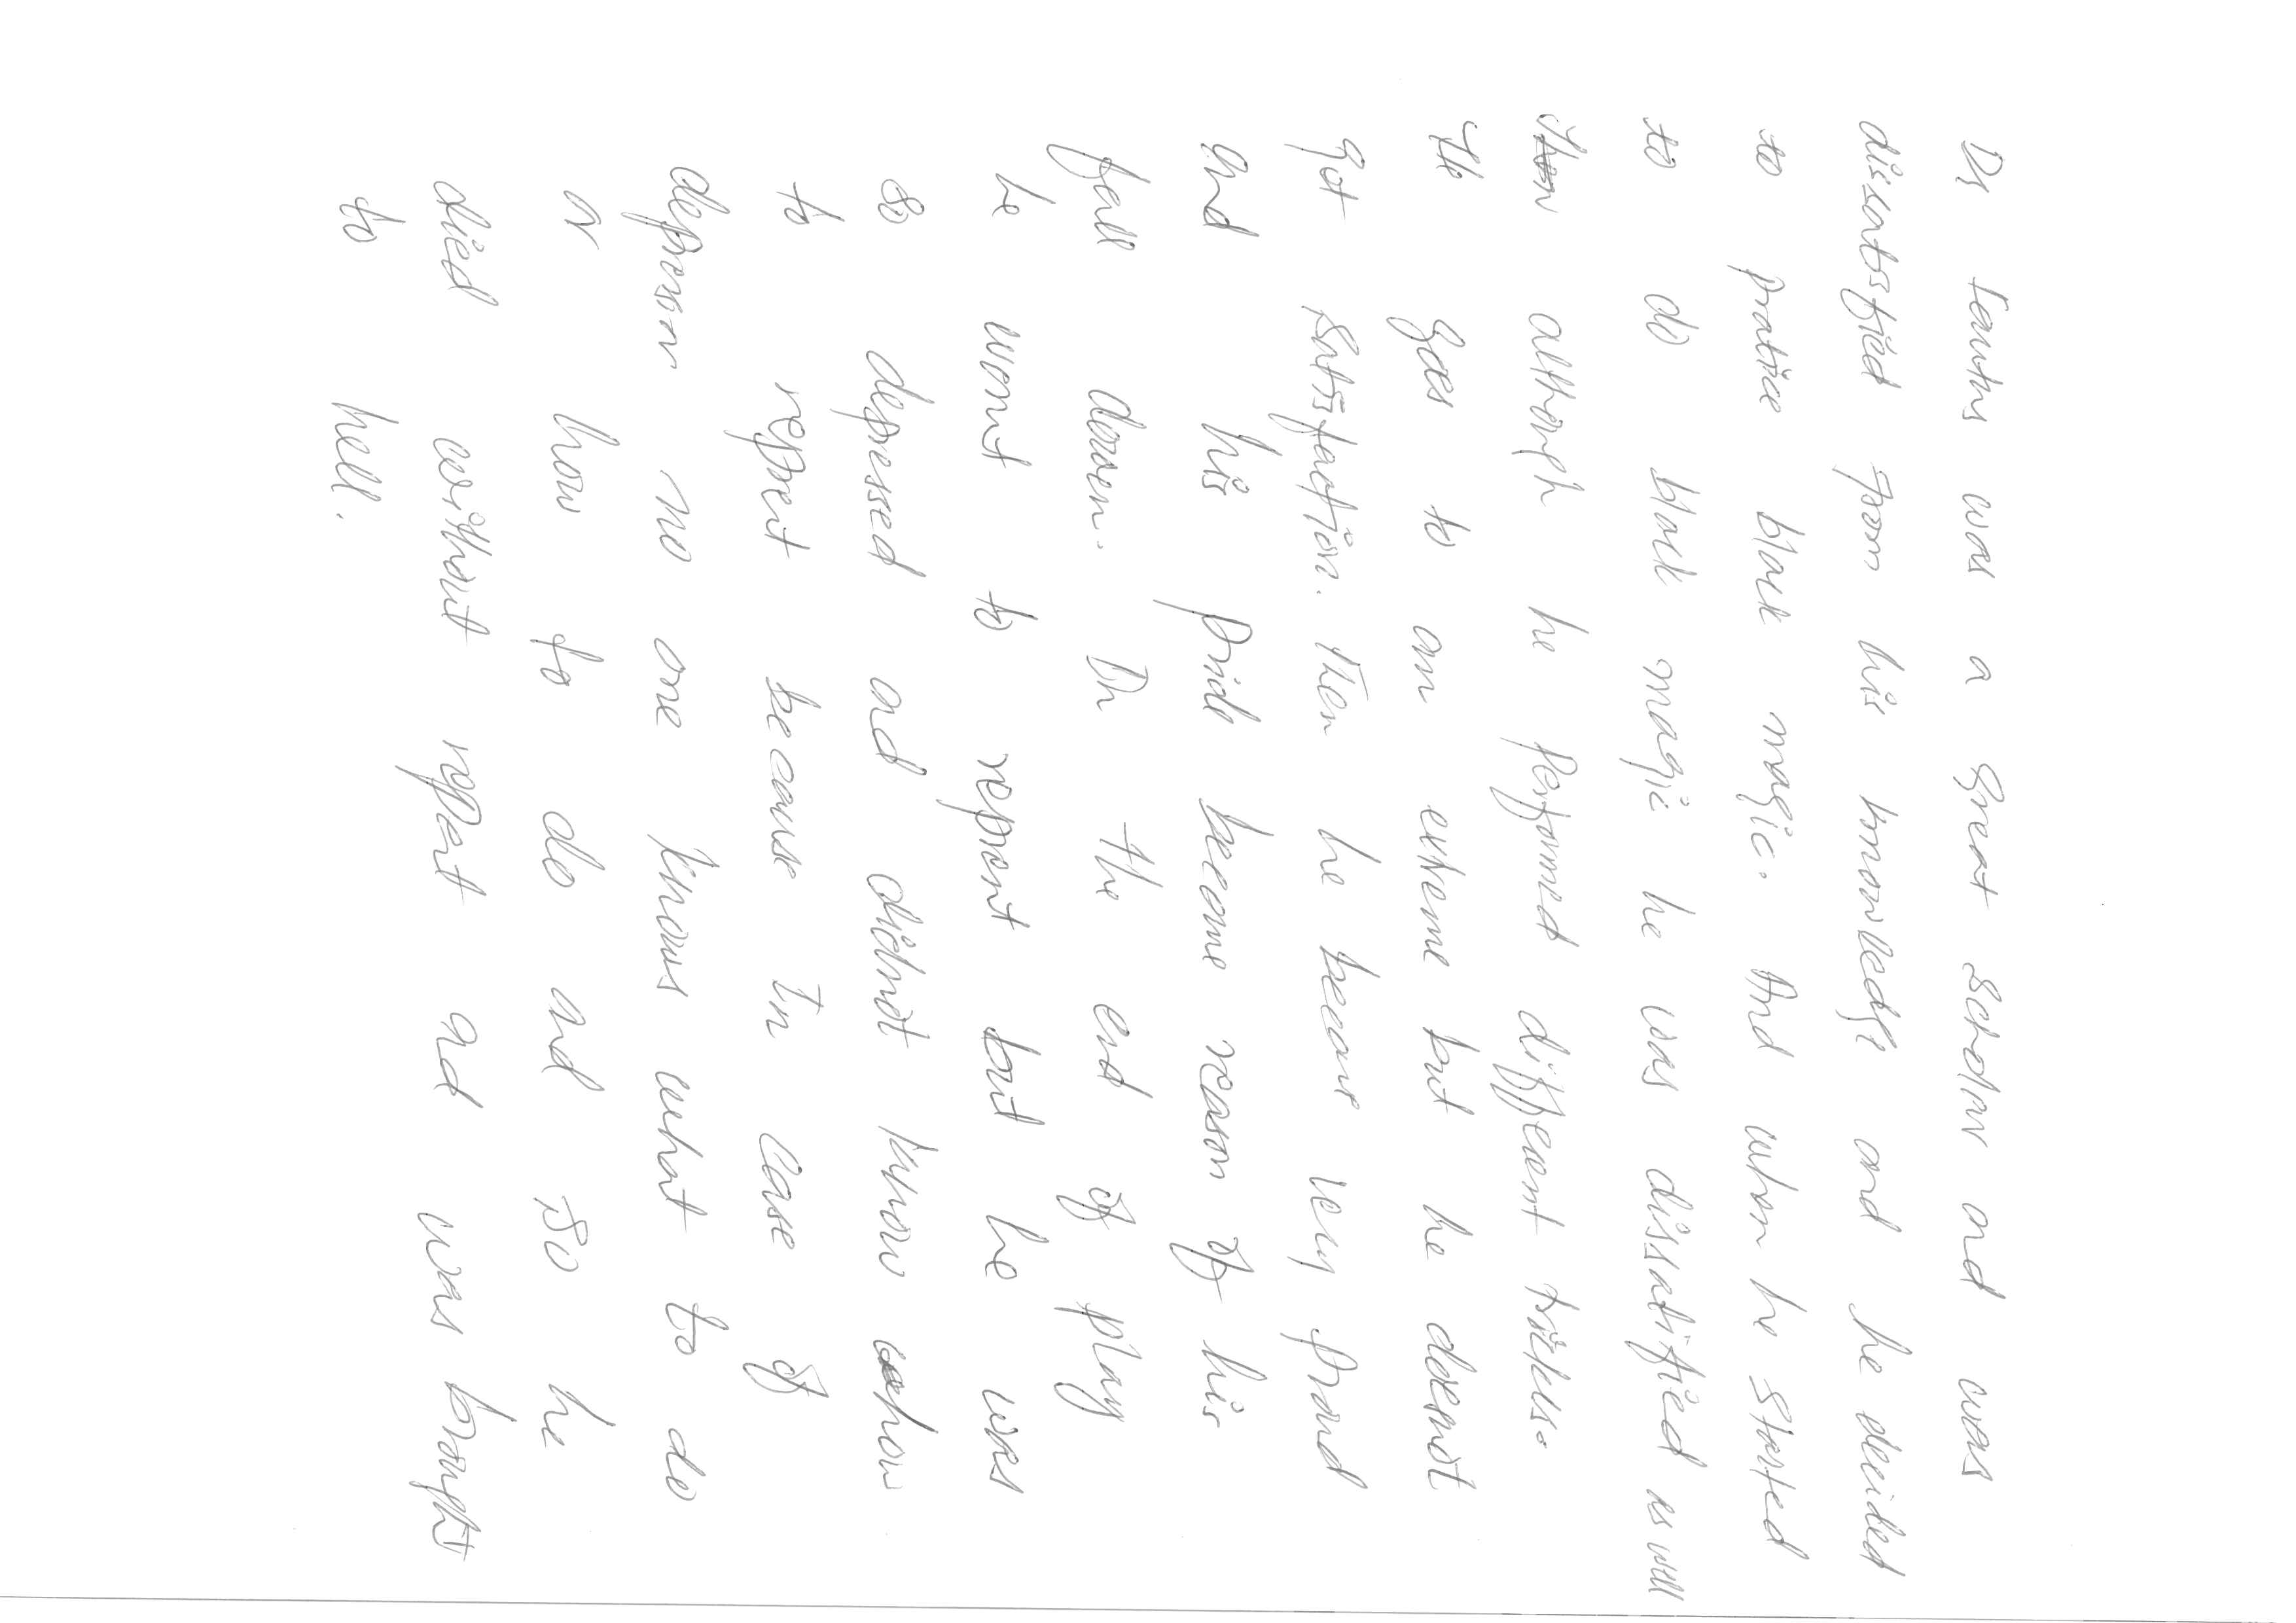 Dr Fauths was a great scholar and was
dissatisfied from his knowledge and he decided
to pratice black magic. And when he started
to do black magic he was dissatified as well
Then although he performed different tricks.
He goes to an extreme but he doesnot
got satisfaction. Then he became very proud
and his pride become reason of his
fall dowen. In the end of play
he wont to reprent but he was
so depressed and didnot know how
to reprent because In case of
depression no one knows what to do
or how to do and so he
died without repent and was brought
to hell.